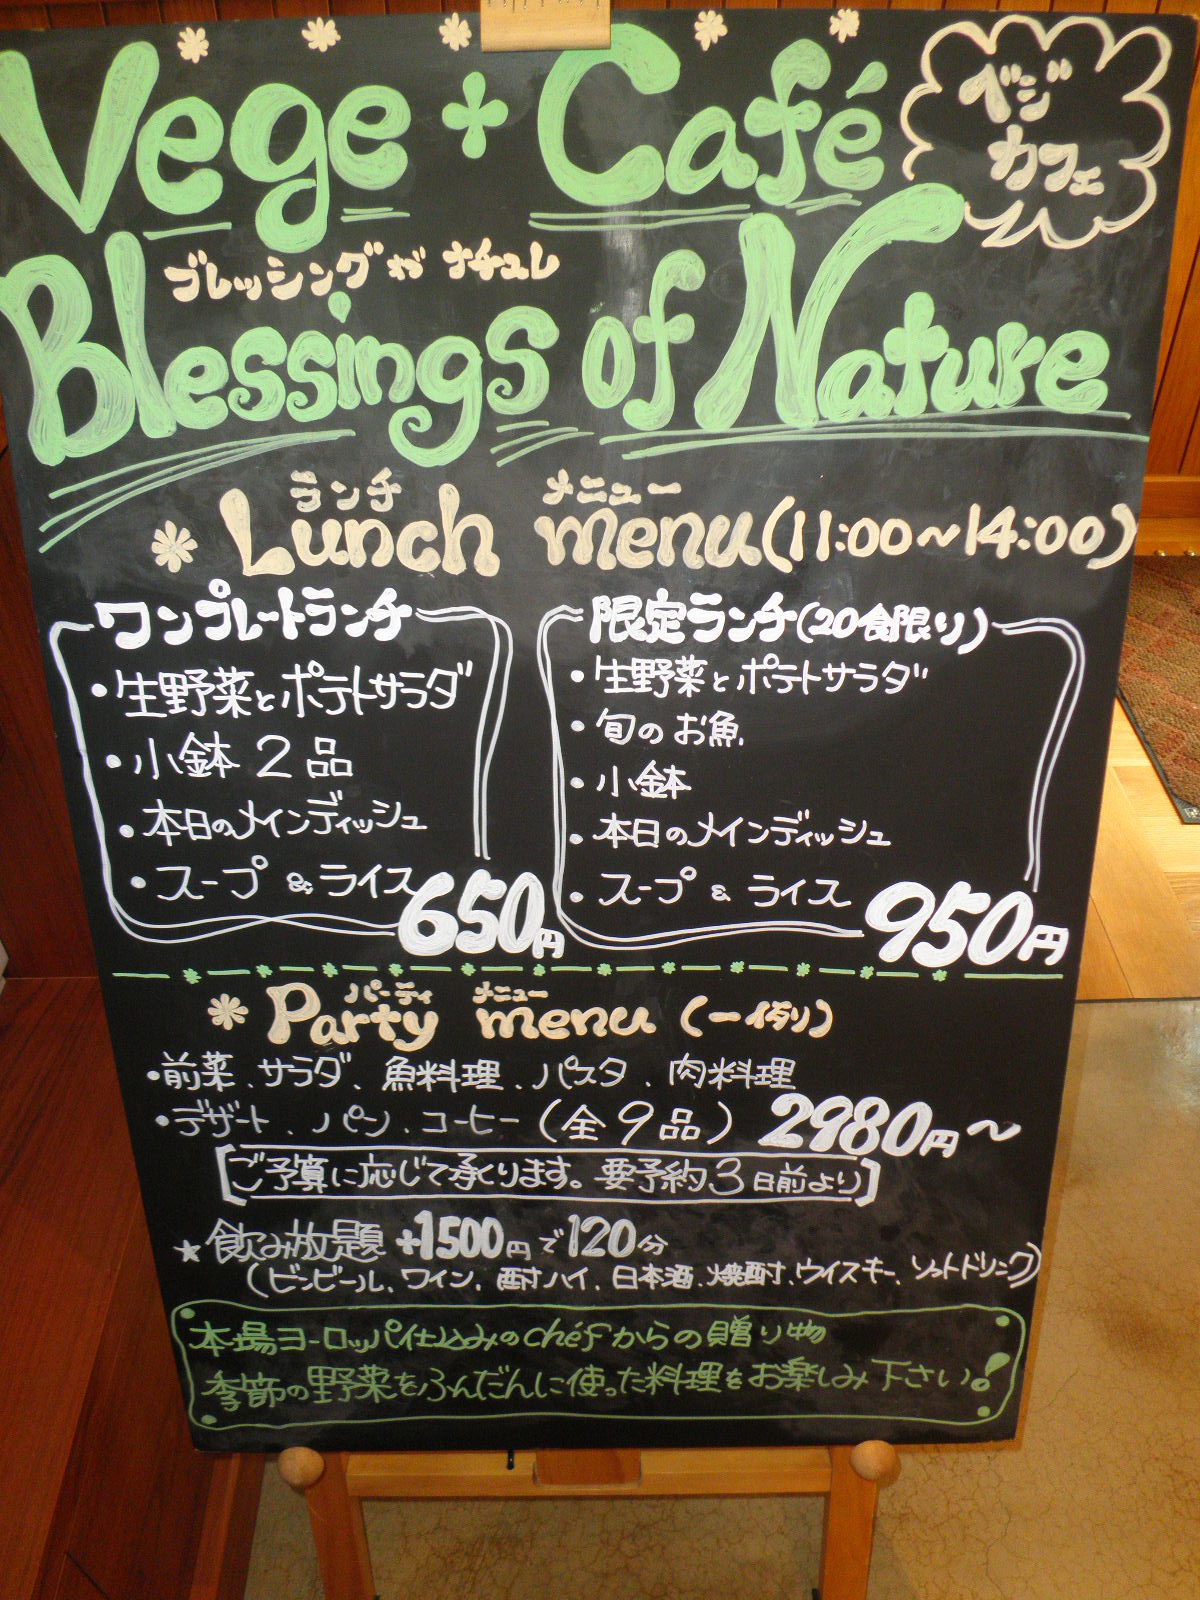 Vege + Café
ベジ
カフェ
ブレッシング オブ ナチュレ
Blessings of Nature
ランチ メニュー
Lunch menu (11:00~14:00)
ワンプレートランチ
・生野菜とポテトサラダ
・小鉢 2品
・本日のメインディッシュ
・スープ & ライス
650円
限定ランチ(20食限り)
・生野菜とポテトサラダ
・旬のお魚
・小鉢
・本日のメインディッシュ
・スープ & ライス
950円
パーティ メニュー
Party menu (一例り)
・前菜、サラダ、魚料理、パスタ、肉料理
・デザート、パン、コーヒー(全9品) 2980円~
[ご予算に応じて承ります。要予約3日前より]
★飲み放題 +1500円で120分
(ビンビール、ワイン、酎ハイ、日本酒、焼酎、ウイスキー、ソフトドリンク)
本場ヨーロッパ仕込みのchéfからの贈り物
季節の野菜をふんだんに使った料理をお楽しみ下さい!